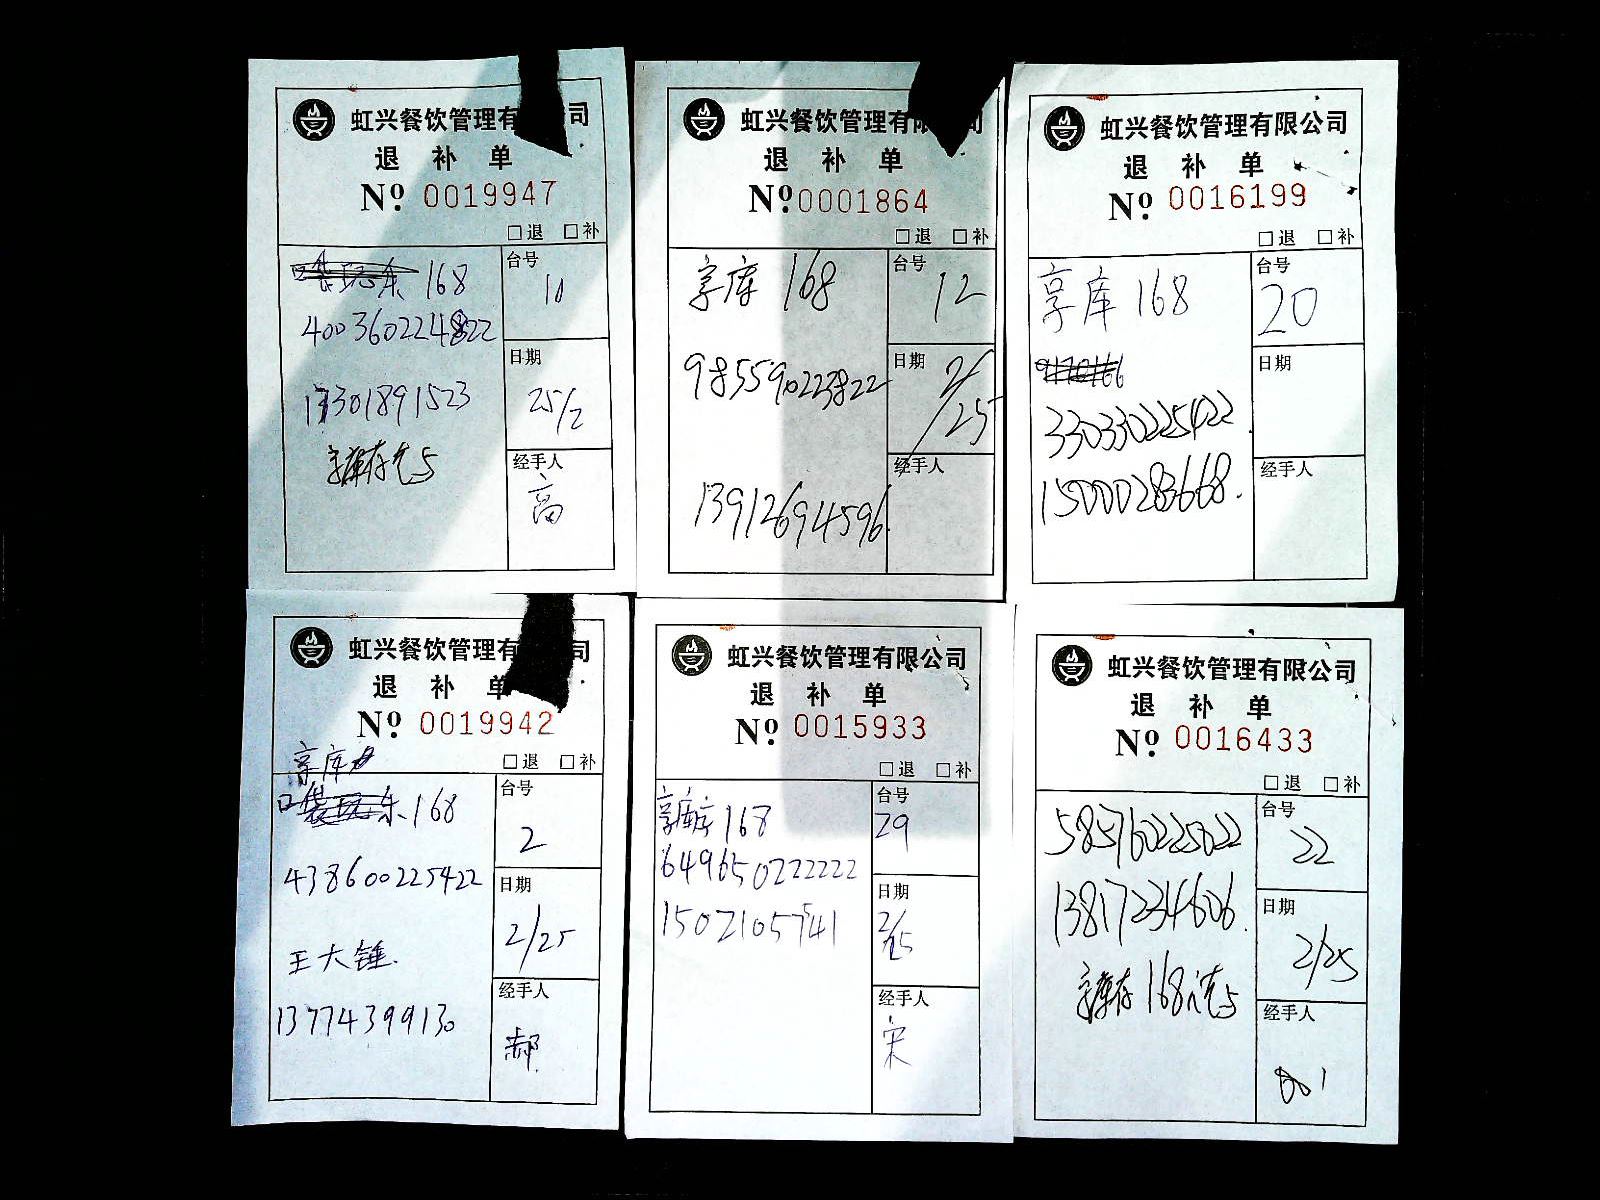 虹兴餐饮管理有限公司
退 补 单
Nº 0019947
□退 □补
168
台号
10
400360224822
日期
25/2
13301891523
经手人
高
虹兴餐饮管理有限公司
退 补 单
Nº 0001864
□退 □补
享库 168
台号
12
985590223822
日期
2/25
经手人
13912694596
虹兴餐饮管理有限公司
退 补 单
Nº 0016199
□退 □补
享库 168
台号
20
日期
330330225422
经手人
15000283668.
虹兴餐饮管理有限公司
退 补 单
Nº 0019942
享库
□退 □补
168
台号
2
438600225422
日期
2/25
王大锤.
经手人
13774399130
郝
虹兴餐饮管理有限公司
退 补 单
Nº 0015933
□退 □补
享库 168
台号
29
649650222222
日期
2/25
15021057541
经手人
宋
虹兴餐饮管理有限公司
退 补 单
Nº 0016433
□退 □补
585760225022
台号
22
13817234606.
日期
2/25
经手人
001